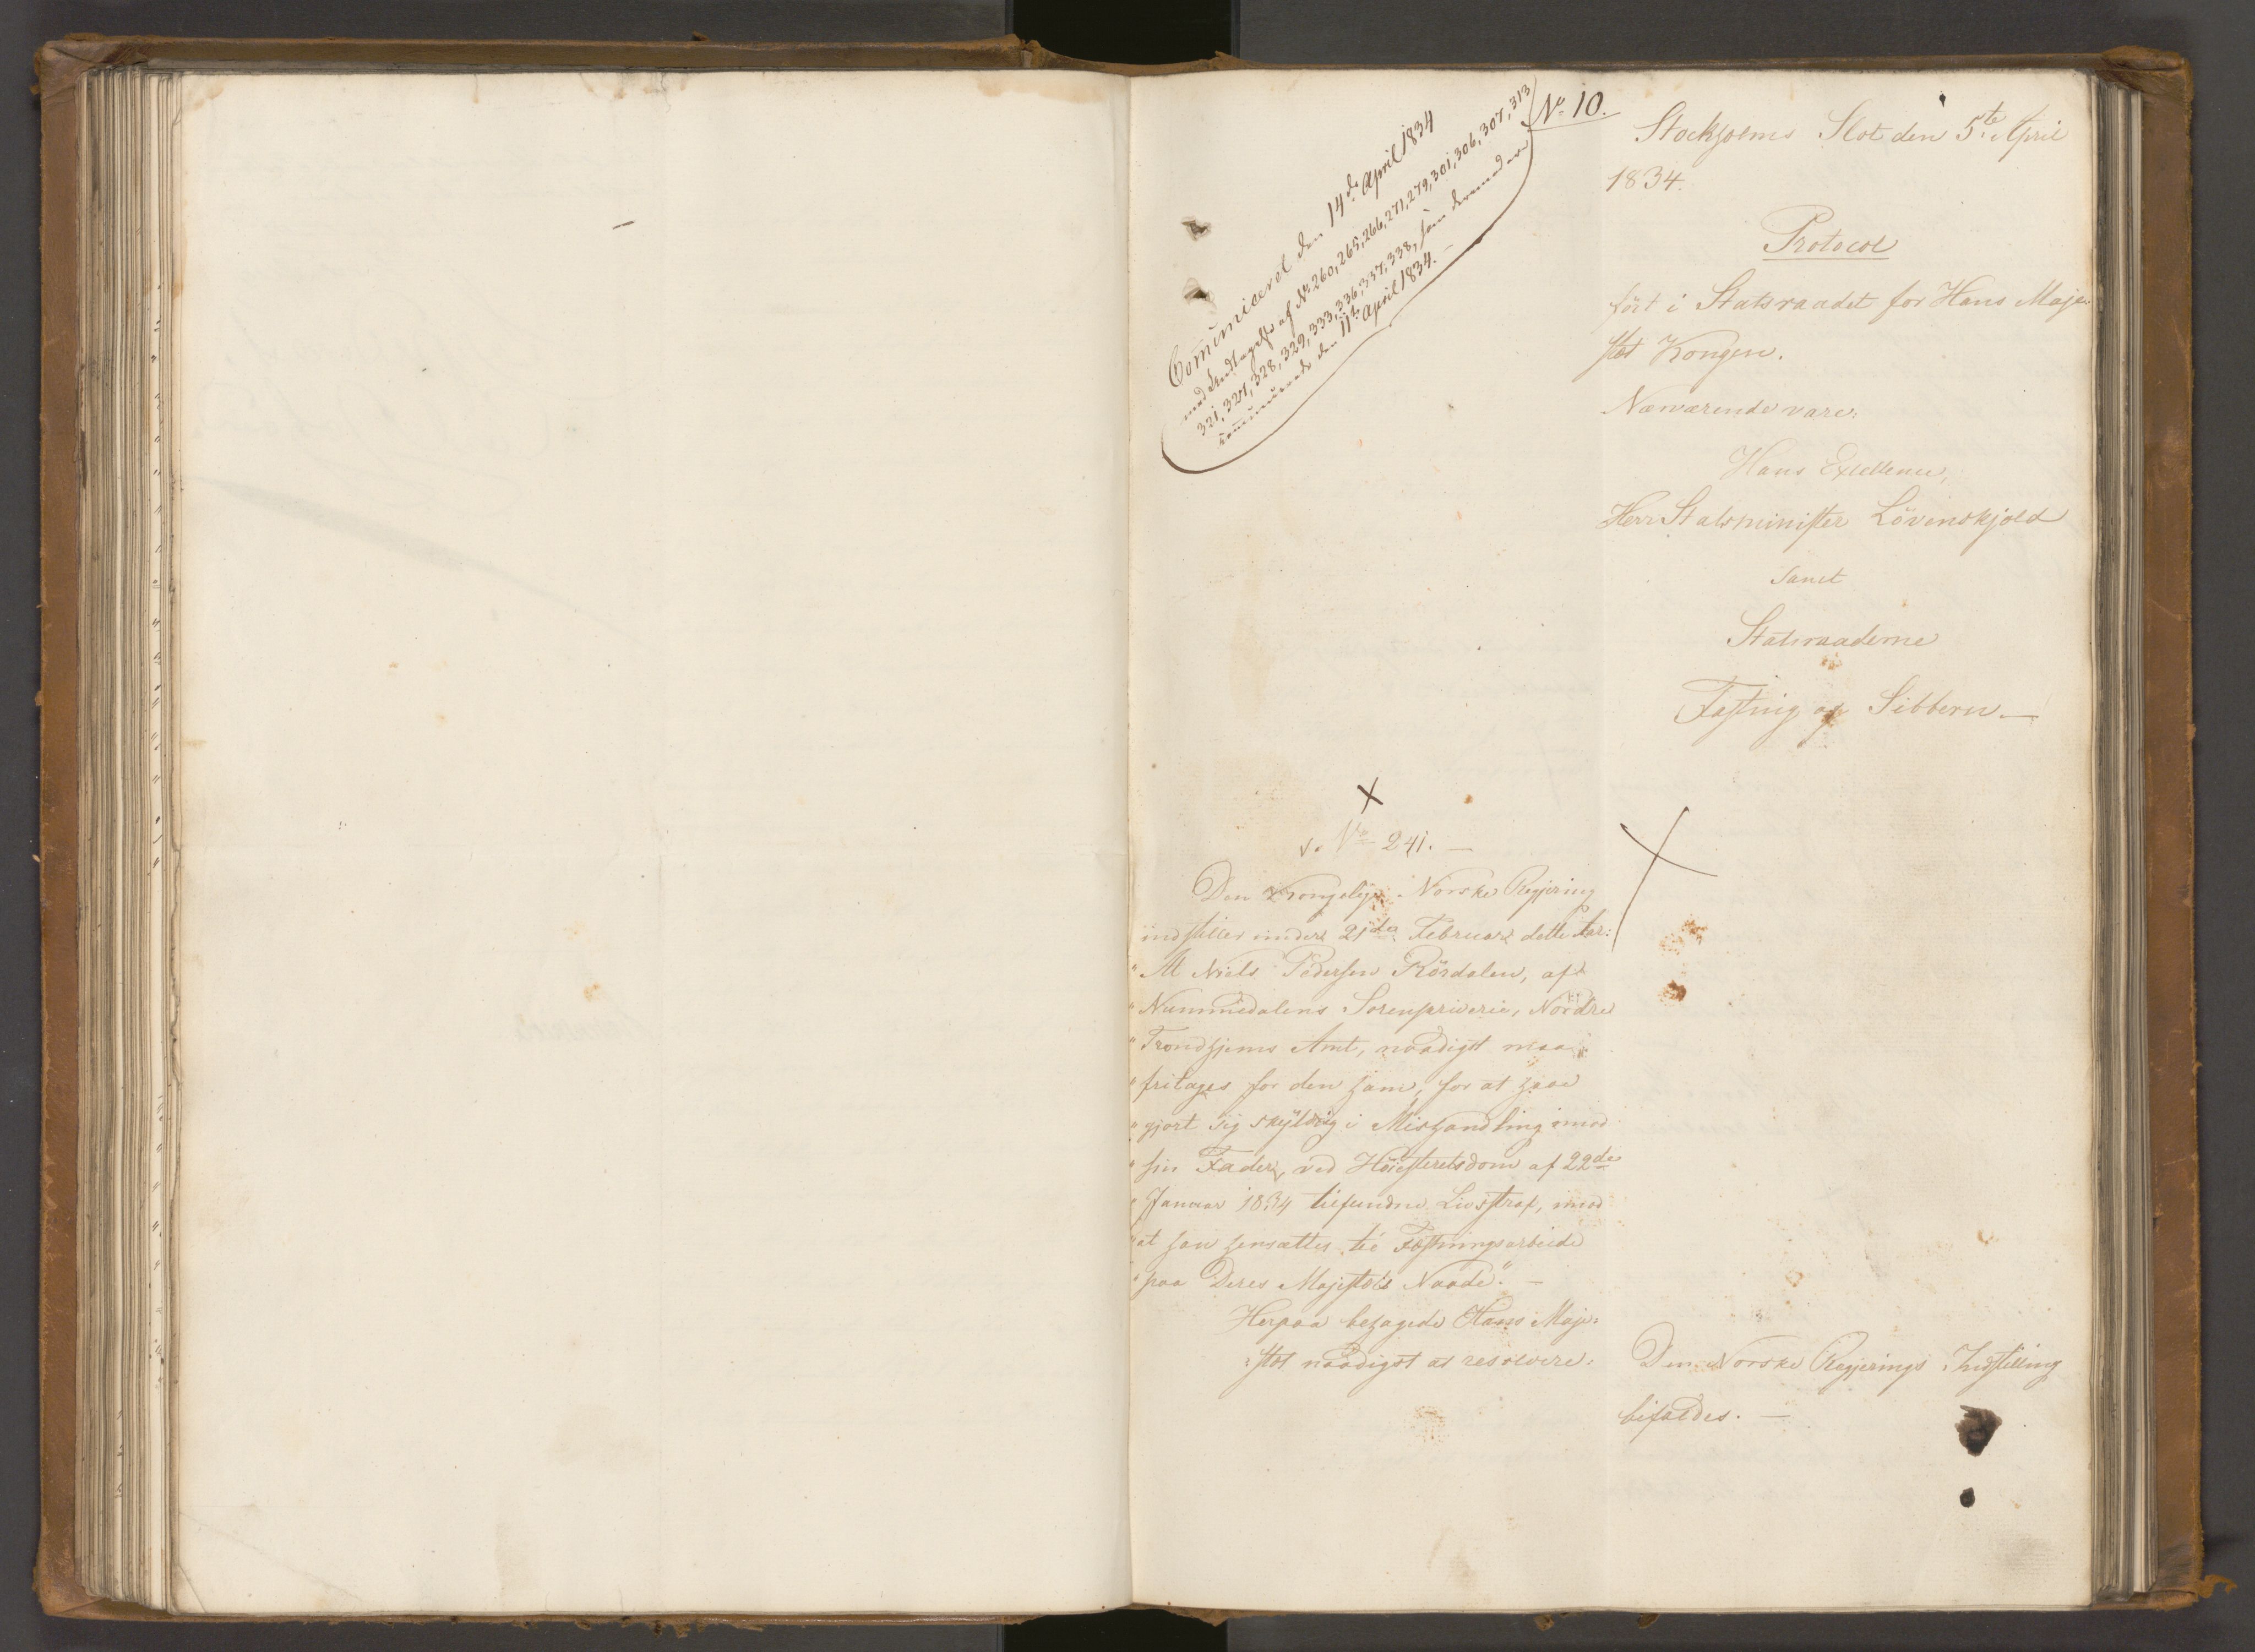 Communiceret den 14de April 1834
med Undtagelse af No 260, 265, 266, 271, 279, 301, 306, 307, 313
321, 327, 328, 329, 333, 336, 337, 338, som
den 11te April 1834.
No 10.
Stockholms Slot den 5te April
1834.
Protocol
fört i Statsraadet for Hans Maje-
stæt Kongen.
Nærværende vare:
Hans Excellence,
Herr Statsminister Lövenskjold
samt
Statsraaderne
Fasting og Sibbern.—
No 241.—
Den Kongelige Norske Regjering
indstiller under 21de Februar dette Aar:
"At Niels Pedersen Rördalen, af
"Nummedalens Sorenskriverie, Nordre
"Trondhjems Amt, naadigst maa
"fritages for den ham, for at have
"gjort sig skyldig i Mishandling imod
"sin Fader, ved Höiesteretsdom af 22de
"Januar 1834 tilfundne Livsstraf, imod
"at han hensættes til Fæstningsarbeide
"paa Deres Majestæts Naade".—
Herpaa behagede Hans Maje-
stæt naadigst at resolvere:
Den Norske Regjerings Indstilling
bifaldes.—